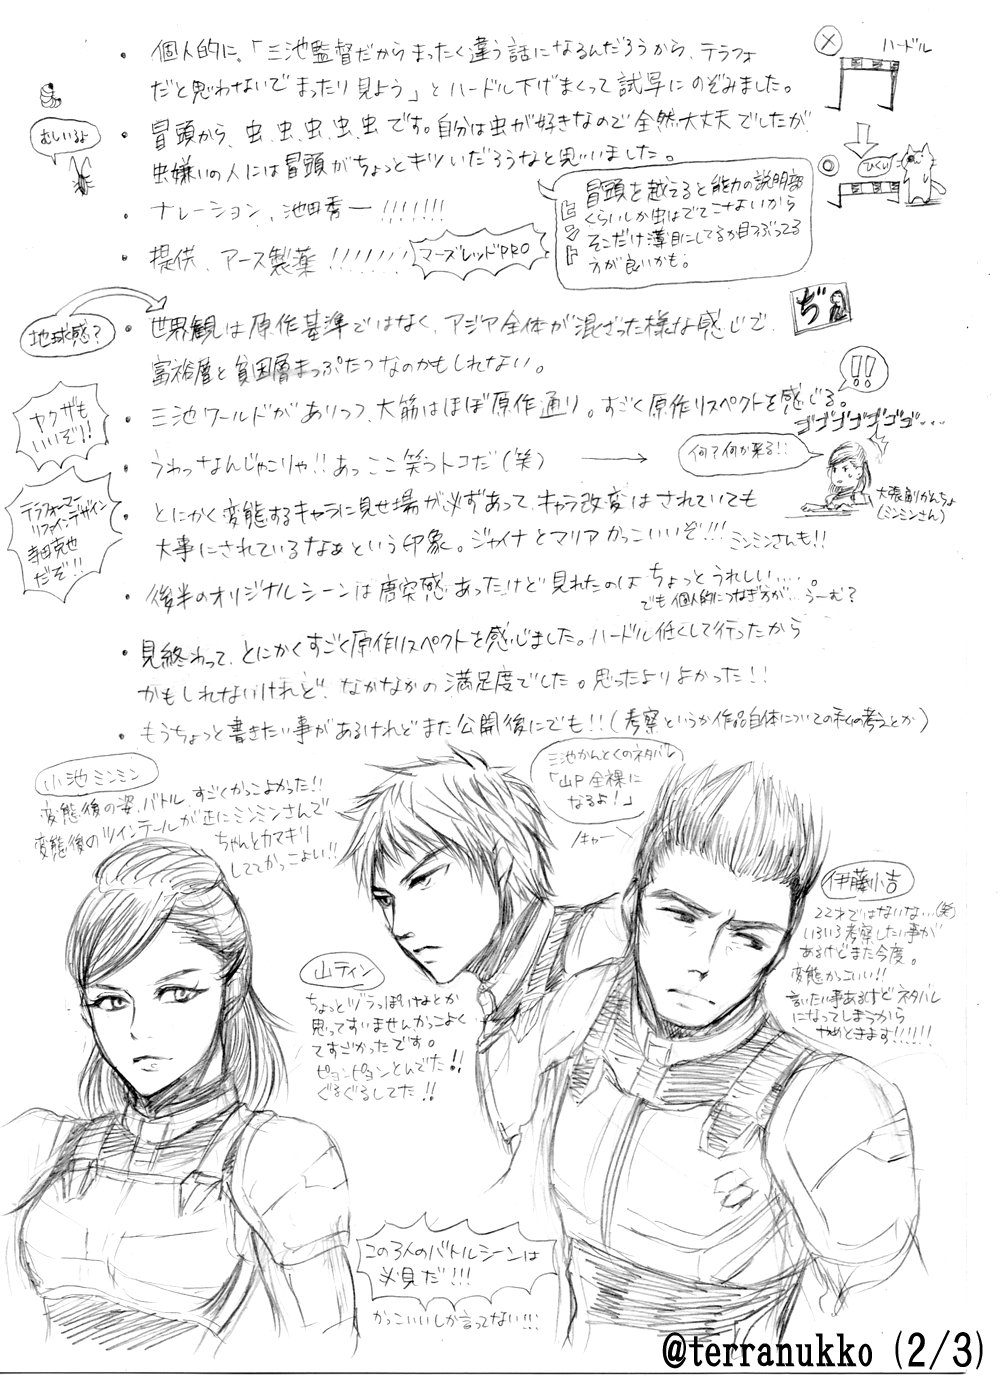 ・個人的に、「三池監督だからまったく違う話になるんだろうから、テラフォ
だと思わないでまったり見よう」とハードル下げまくって試写にのぞみました。
ハードル
ひくい
むしいるよ
・冒頭から、虫、虫、虫、虫、虫です。自分は虫が好きなので全然大丈夫でしたが、
虫嫌いの人には冒頭がちょっとキツいだろうなと思いました。
ヒント
冒頭を越えると能力の説明部
くらいしか虫はでてこないから
そこだけ薄目にしてるか目つぶってる
方が良いかも。
・ナレーション、池田秀一!!!!!!!
・提供、アース製薬!!!!!!!
マーズレッドPRO
地球感?
・世界観は原作基準ではなく、アジア全体が混ざった様な感じで、
富裕層と貧困層まっぷたつなのかもしれない。
ぢ
ヤクザも
いいぞ!!
・三池ワールドがありつつ、大筋はほぼ原作通り。すごく原作リスペクトを感じる。
!!
ゴゴゴゴゴゴゴ…
・うわっなんじゃこりゃ!!あっここ笑うトコだ(笑)
何?何か来る!!
大張り切かんちょ
(ミンミンさん)
テラフォーマー
リファインデザイン
寺田克也
だぞ!!
・とにかく変態するキャラに見せ場が必ずあって、キャラ改変はされていても
大事にされているなぁという印象。ジャイナとマリアかっこいいぞ!!!ミンミンさんも!!
・後半のオリジナルシーンは唐突感あったけど見れたのはちょっとうれしい…。
でも個人的につなぎ方が…うーむ?
・見終わって、とにかくすごく原作リスペクトを感じました。ハードル低くして行ったから
かもしれないけれど、なかなかの満足度でした。思ったよりよかった!!
・もうちょっと書きたい事があるけれどまた公開後にでも!!(考察というか作品自体についての私の考えとか)
小池ミンミン
変態後の姿、バトル、すごくかっこよかった!!
変態後のツインテールが正にミンミンさんで
ちゃんとカマキリ
しててかっこよい!!
三池かんとくのネタバレ
「山P全裸に
なるよ!」
キャー
山ティン
ちょっとヅラっぽいけなとか
思ってすいませんかっこよく
てすごかったです。
ピョンピョンとんでた!!
ぐるぐるしてた!!
伊藤小吉
22才ではないな…(笑)
いろいろ考察したい事が
あるけどまた今度。
変態かっこいい!!
言いたい事あるけどネタバレ
になってしまうから
やめときます!!!!!!
この3人のバトルシーンは
必見だ!!!
かっこいいしか言ってない!!!
@terranukko (2/3)